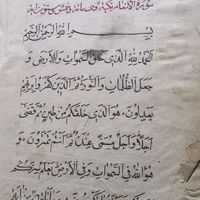 سورة الانعام
بسم الله الرحمن الرحيم
الحمد لله الذي خلق السموات والارض و
جعل الظلمات والنور ثم الذين كفروا بربهم
يعدلون هو الذي خلقكم من طين ثم قضى
اجلا واجل مسمى عنده ثم انتم تمترون و
هو الله في السموات وفي الارض يعلم سركم